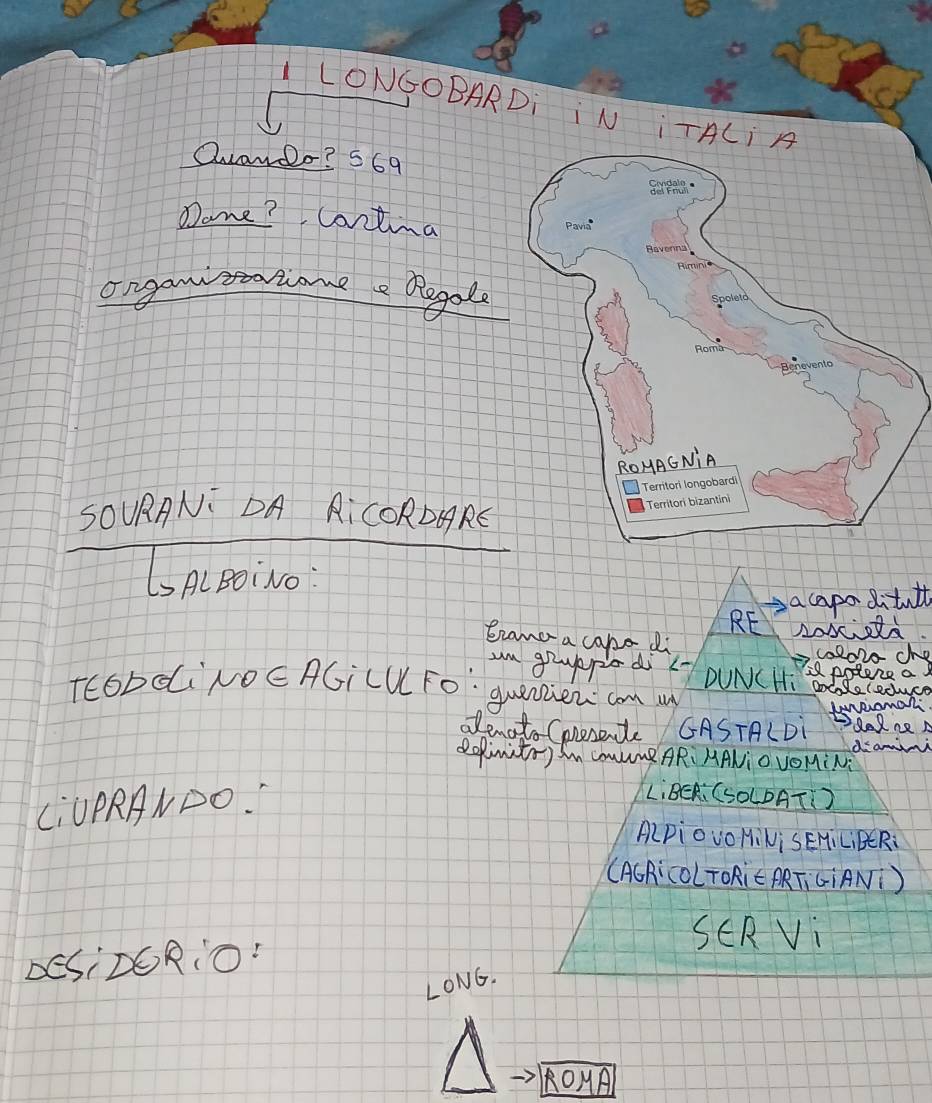 I LONGOBARDi iN iTALiA
Quando? 569
Dove? . Cartina
organizzazione e Regole
Cividale
del Friuli
Pavia
Ravenna
Rimini
Spoleto
Roma
Benevento
ROMAGNiA
Territori longobardi
Territori bizantini
SOVRANi DA RiCORDARE
ALBOiNO:
TEODOLiNO E AGiLULFO:
LiUPRANDO:
DESiDERiO:
RE
a capo di tutt
società.
Erano a capo di
un gruppo di
guerrieri con un
definito) in comune
DUNCHi
coloro che
il potere a l
GASTALDi
dal re s
ARiMANi O UOMiNi
LiBERi (SOLDATi)
ALDi O UOMiNi SEMiLiBERi
(AGRiCOLTORi E ARTiGiANi)
SERVi
LONG.
ROMA